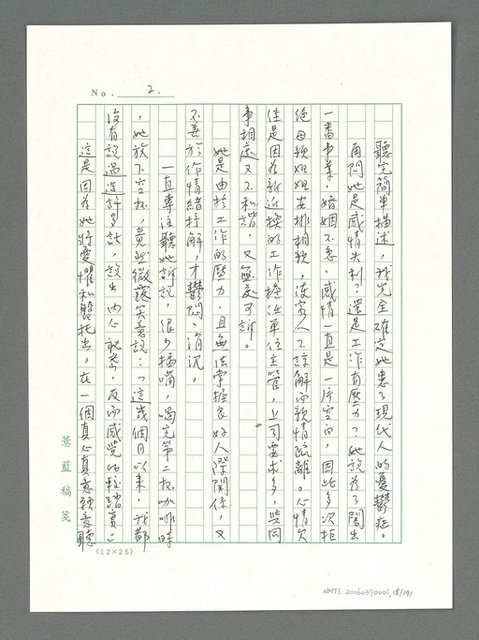 No. 2.
聽完簡單描述，我完全確定她患了現代人的憂鬱症。
再問她是感情失利？還是工作有壓力？她說為了闖出
一番事業，婚姻不急，感情一直是一片空白，因此多次拒
絕母親姐姐安排相親，使家人不諒解而親情疏離。心情欠
佳是因為新近換的工作擔任單位主管，上司要求多，與同
事相處又不和諧，又無處可訴。
她是由於工作的壓力，且無法掌握良好人際關係，又
不善於作情緒抒解，才鬱悶、消沉。
一直專注聽她訴說，很少插嘴，喝完第二杯咖啡時
，她放下空杯，竟然微露笑意說：「這幾個月以來，我都
沒有說過這許多話，說出內心秘密，反而感覺比較踏實」
這是因為她將憂懼和盤托出，在一個真心真意願意聽
薏藍稿箋
(12×25)
NMTL 20060370001, 18/191